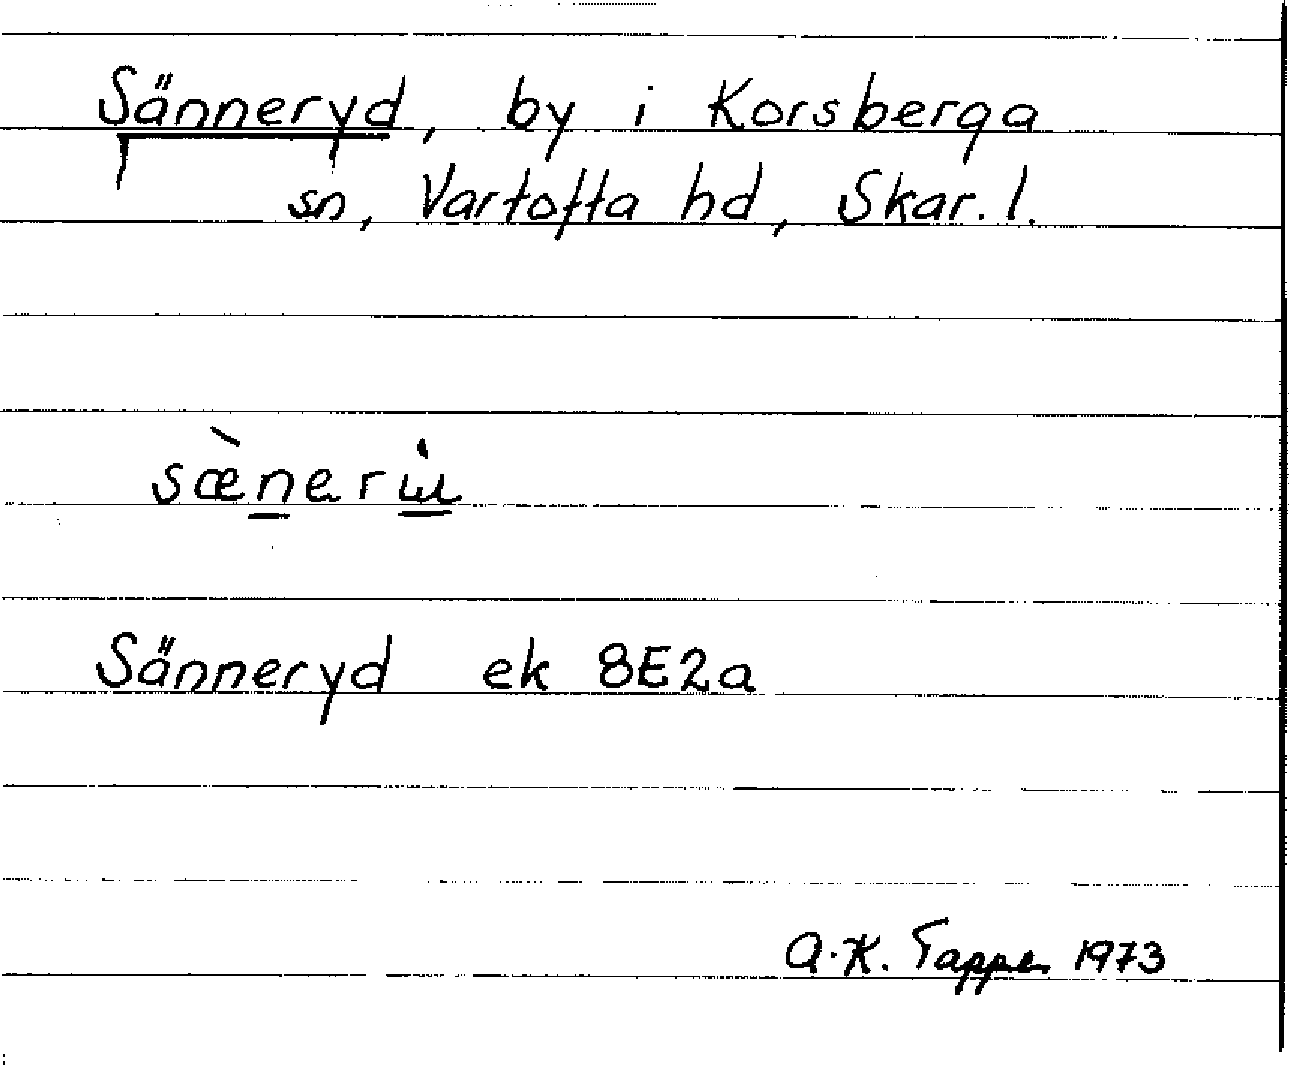 Sänneryd, by i Korsberga
sn, Vartofta hd, Skar. l.
sæ̀nerɯ̇
Sänneryd ek 8E2a
A-K. Tapper 1973